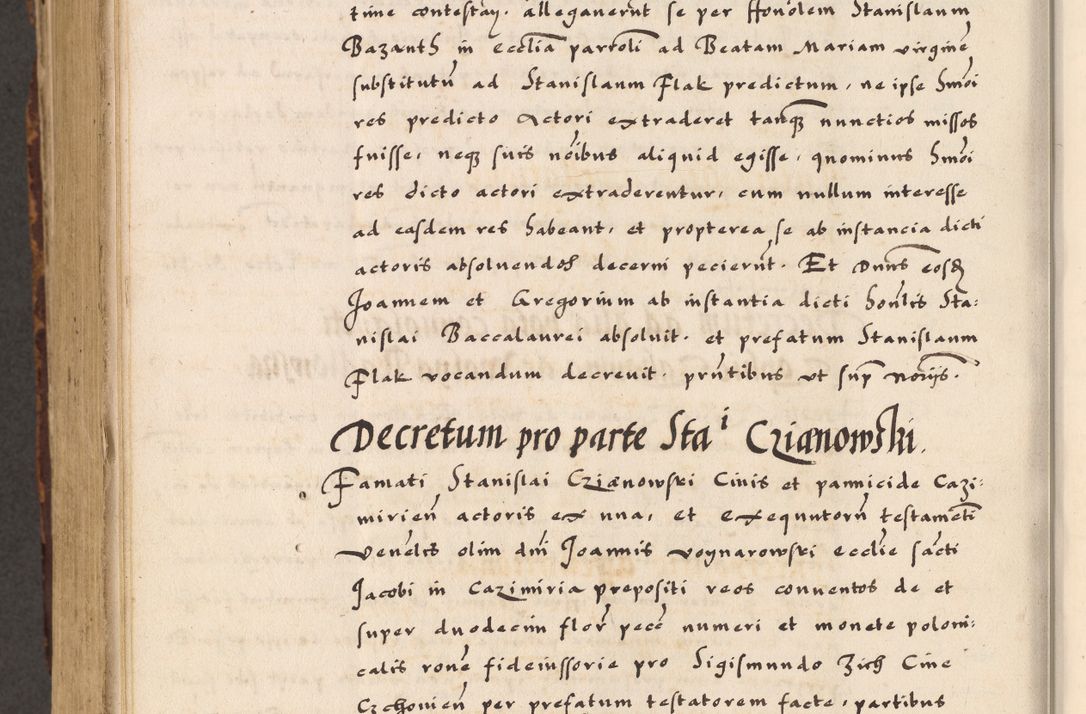 time contestaȷ. allegaverūt se per Honōlem Stanislaum
Bazanth in ecclīa parroli̅ ad Beatam Mariam virginē
substitutū ad Stanislaum Flak predictum, ne ipse hmōi
res predicto Actori extraderet tanqȝ nunctios missos
fuisse, neqȝ suis nōibus aliquid egisse, quominus hmōi
res dicto actori extraderentur, cum nullum interesse
ad easdem res habeant, et propterea se ab instancia dicti
actoris absoluendos decerni pecierūt. Et Dnūs eosdē
Joannem et Gregorium ab instantia dicti honlis Sta:
nislai Baccalaurei absoluit. et prefatum Stanislaum
Flak vocandum decreuit. prn̄tibus ut sup̄ noriȷs.
Decretum pro parte Staⁱ Czianowski.
Famati Stanislai Czianowski Ciuis et pannicide Cazi:
mirien̄ actoris ex una, et exequutorū testamēti
Venelis olim dn̄i Joannis Voynarowski ecclie sācti
Jacobi in Cazimiria prepositi reos conuentos de et
super duodecim flor̄ pecē numeri et monete poloni:
calis ronē fideiussorie pro Sigismundo Zich Ciue
Czchouien̄ per prefatum testatorem facte, partibus